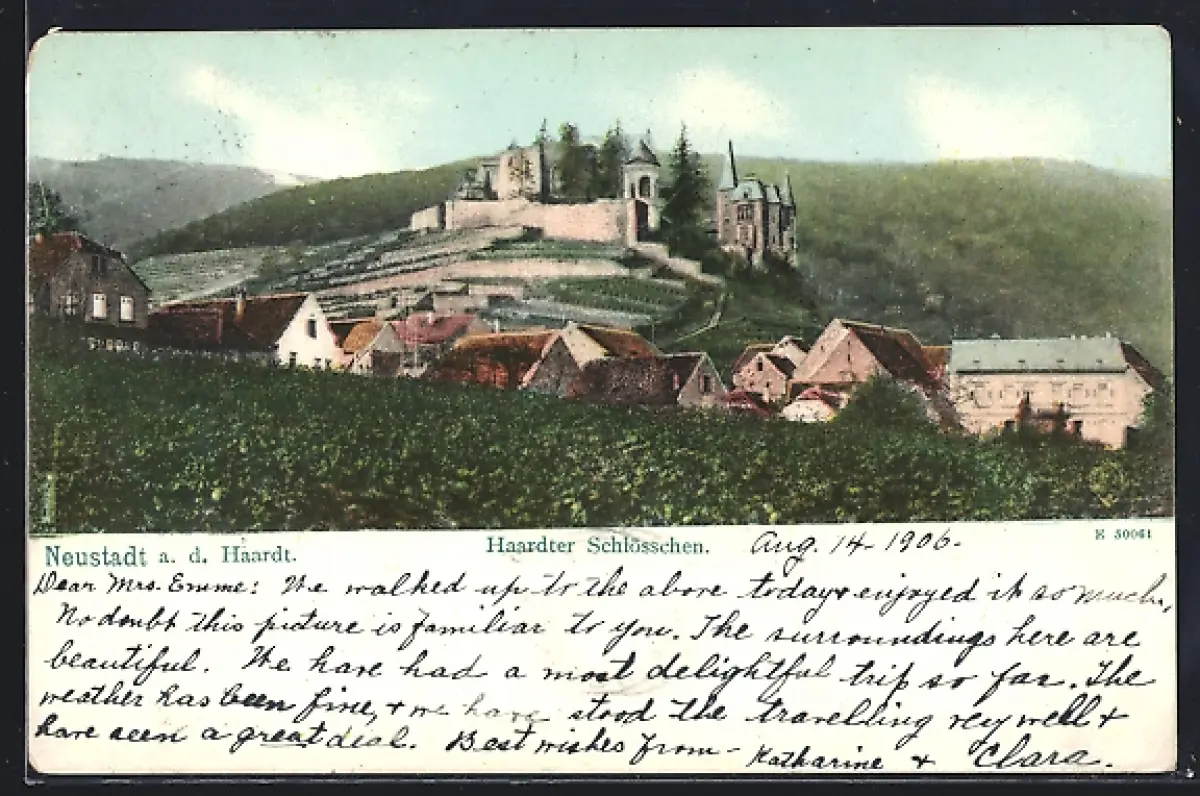 Neustadt a. d. Haardt.
Haardter Schlösschen.
Aug. 14-1906-
E 30061
Dear Mrs. Emme: We walked up to the above today & enjoyed it so much,
No doubt this picture is familiar to you. The surroundings here are
beautiful. We have had a most delightful trip so far. The
weather has been fine, & we have stood the travelling very well &
have seen a great deal. Best wishes from - Katharine & Clara.